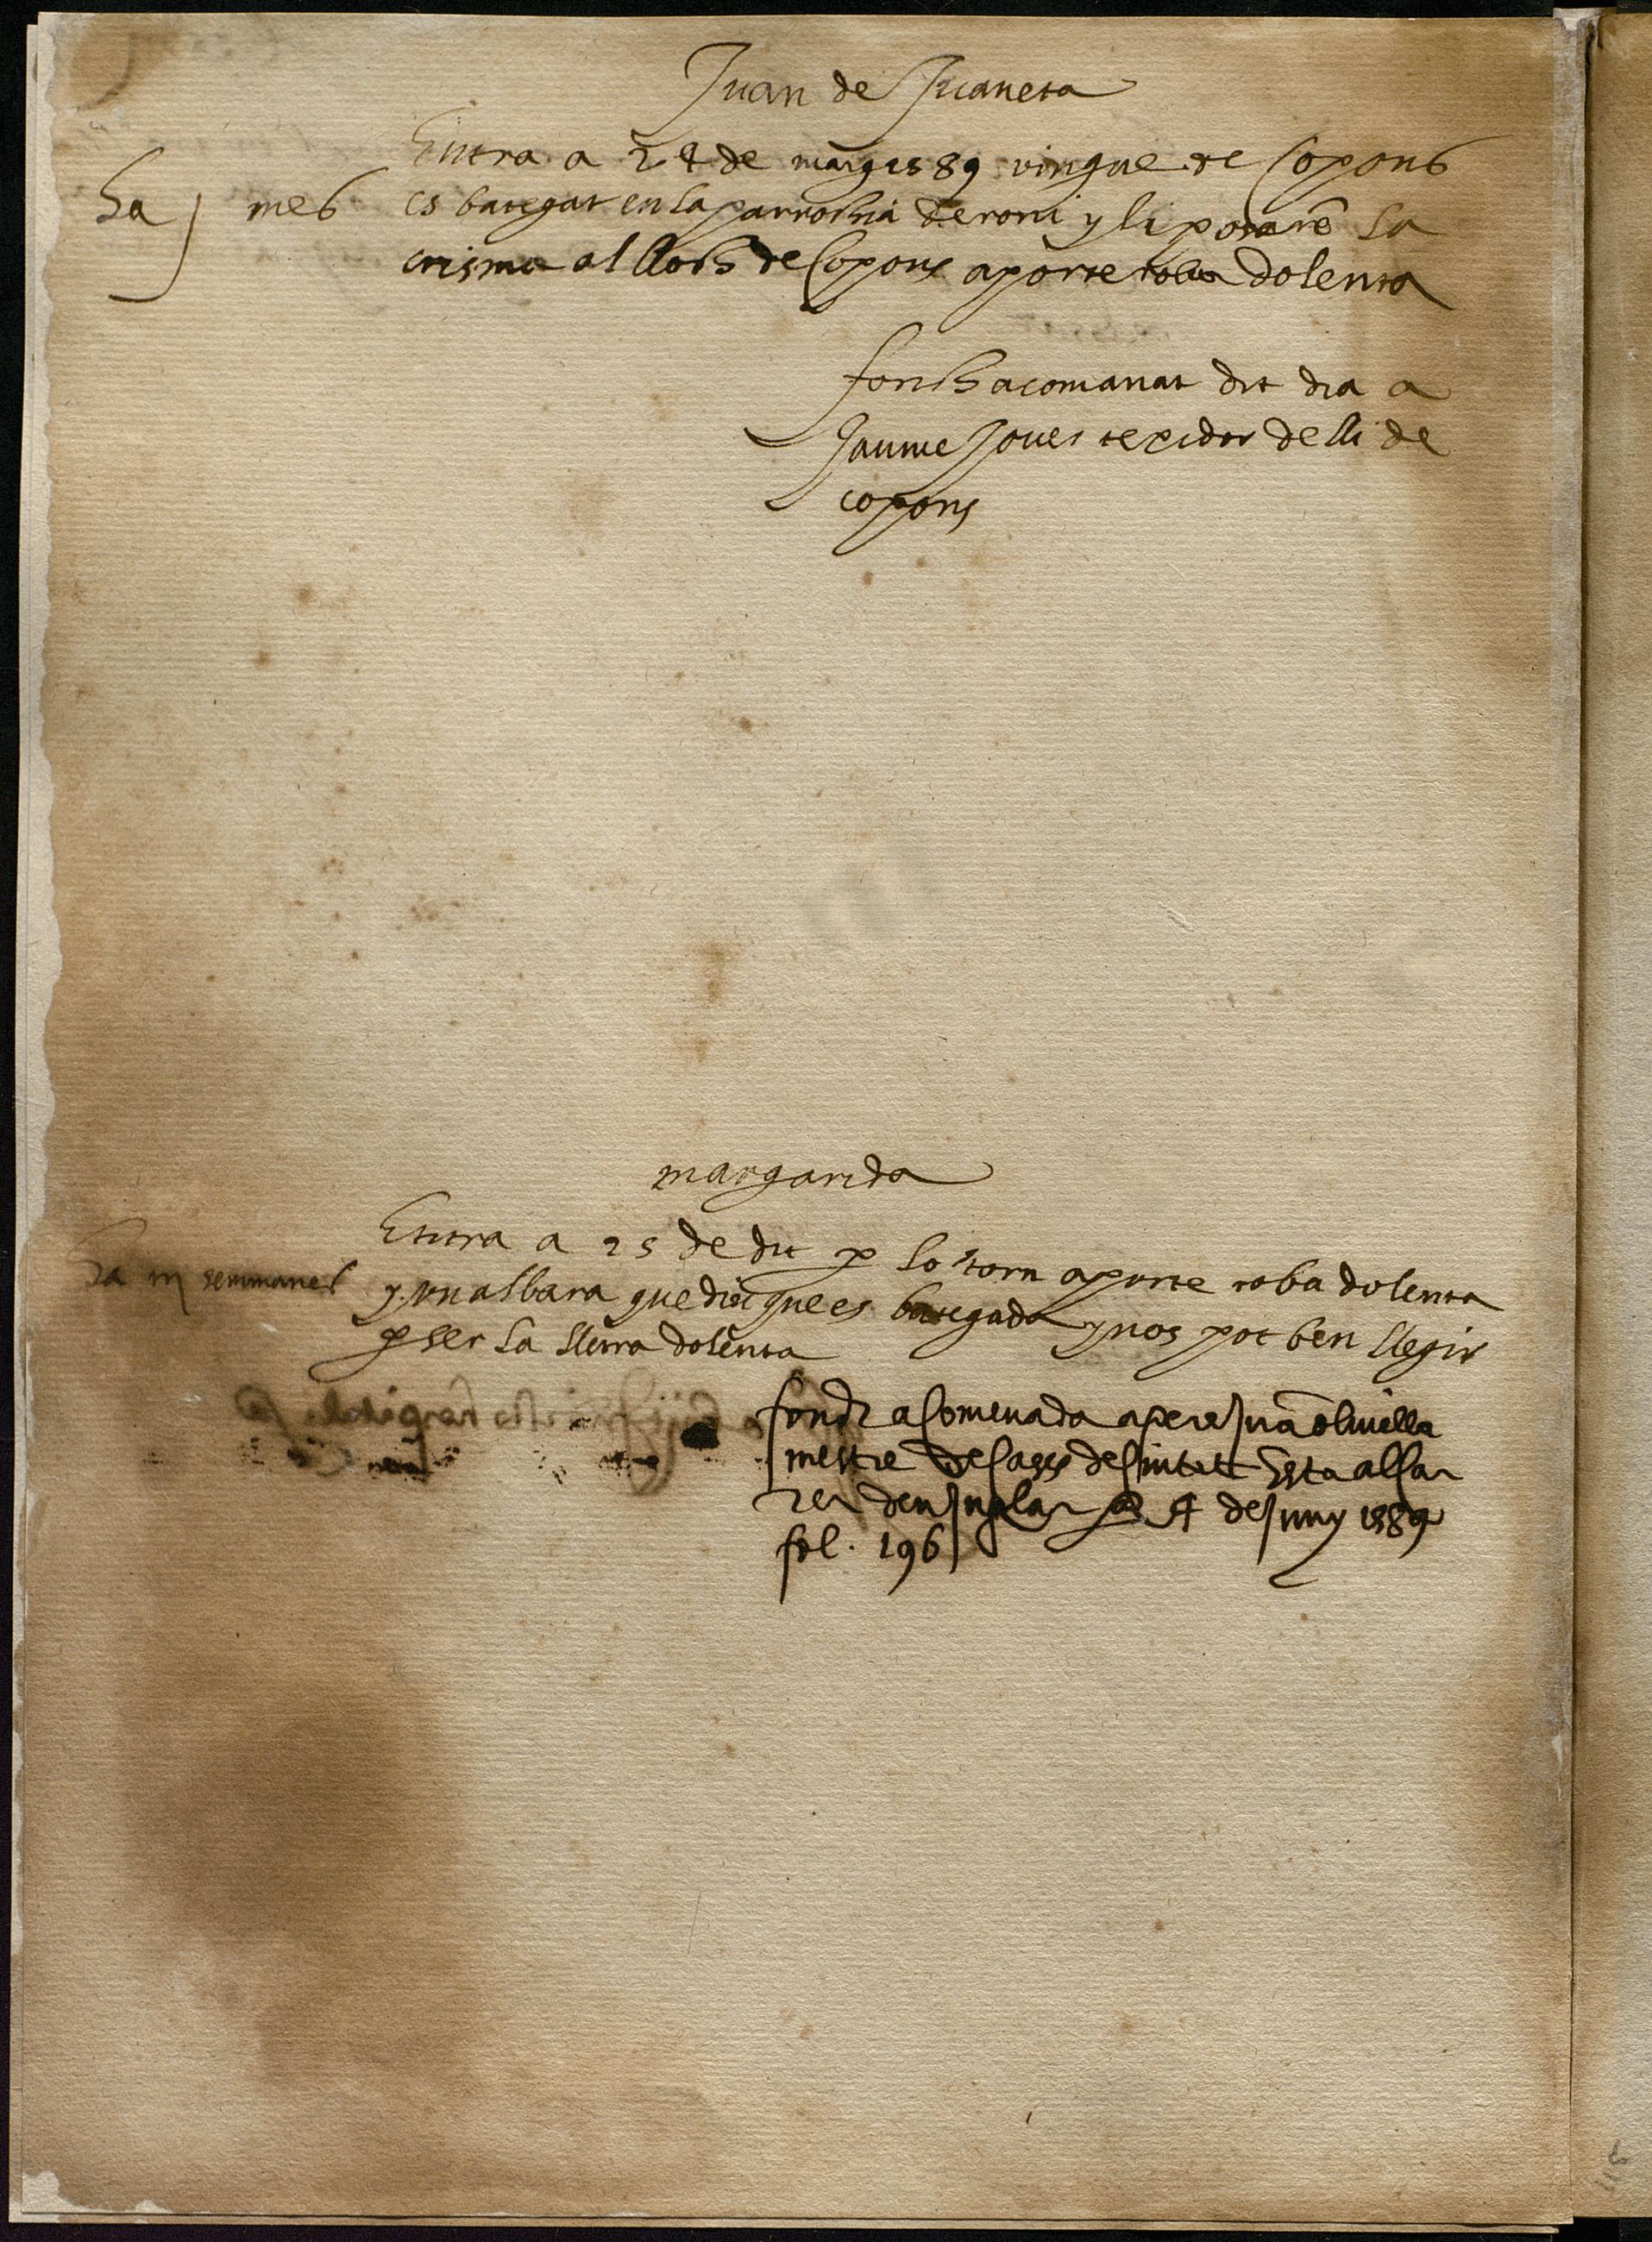 Juan de Juaneta
Entra a 24 de mars 1589 vingue de Copons
ha j mes
es bategat en la parrochia de roni y li posarē la
crisma al lloch de Copons aporte roba dolenta
fonch acomanat dit dia a
Jaume Joues texidor de lli de
copons
margarida
Entra a 25 de dit p lo torn aporte roba dolenta
ha iij semmanes
y vn albara que diu que es bategada y nos pot ben llegir
p ser la lletra dolenta
fonch acomenada a pere Juā oliuella
mestre de cases de Ciutat esta al car
rer den a 4 de Juny 1589
fol. 196